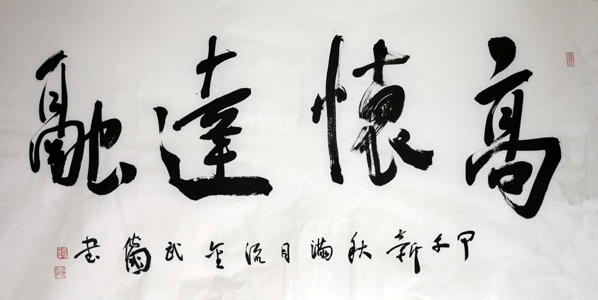 高懷達融
甲午新秋滿目流金武書